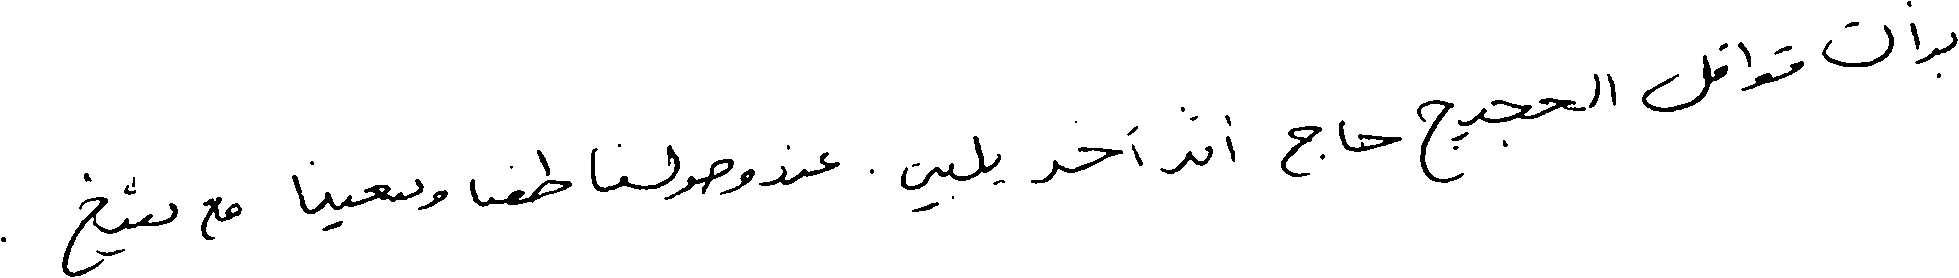 بدأت قوافل الحجيج حاج اثر آخر يلبي. عند وصولنا طفنا وسعينا مع شيخ .